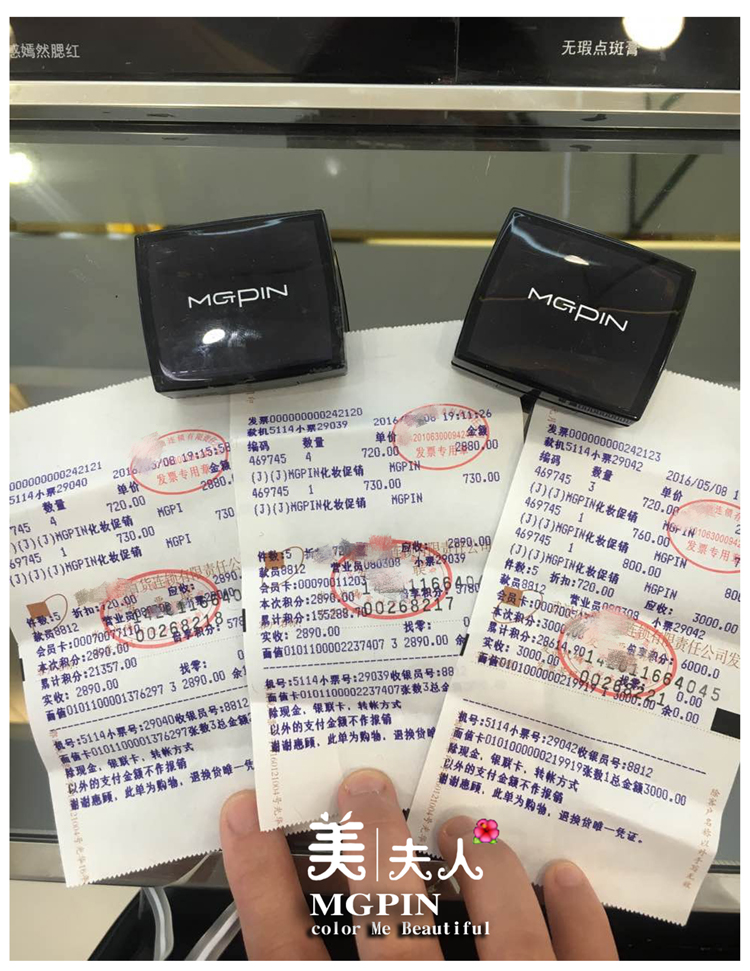 感嫣然腮红
无瑕点斑膏
MGPIN
MGPIN
000000000242121
5114小票29040
2016/05/08 19:15:58
数量 单价 金额
745 4 720.00 2880.00
(J)(J)MGPIN化妆促销 MGPI
469745 1 730.00 730
(J)(J)(J)MGPIN化妆促销 MGPI
件数:5 折扣:720.00 应收: 2890.
款员8812 营业员080308
会员卡:00070077110
本次积分:2890.00
累计积分:21357.00
实收: 2890.00 找零:
面值0101100001376297 3 2890.00 余
00268218
机号:5114小票号:29040收银员号:8812
面值卡0101100001376297张数3总金额
除现金，银联卡，转帐方式
以外的支付金额不作报销
谢谢惠顾，此单为购物，退换货唯一凭
发票专用章
发票000000000242120
款机5114小票29039
2016/05/08 19:11:26
编码 数量 单价 金额
469745 4 720.00 2880.00
(J)(J)MGPIN化妆促销 MGPIN
469745 1 730.00 730.00
(J)(J)(J)MGPIN化妆促销 MGPIN
件数:5 折扣:720 应收: 2890.00
款员8812 营业员080308 小票29039
会员卡:00090011203
本次积分:2890.00
累计积分:155288.70
实收: 2890.00 找零:
面值0101100002237407 3 2890.00 余
00268217
机号:5114小票号:29039收银员号:88
面值卡0101100002237407张数3总
除现金，银联卡，转帐方式
以外的支付金额不作报销
谢谢惠顾，此单为购物，退换货唯一
发票专用章
发票000000000242123
款机5114小票29042
2016/05/08 1
编码 数量 单价
469745 3 720.00
(J)(J)MGPIN化妆促销 MGPIN
469745 1 760.00
(J)(J)(J)MGPIN化妆促销 MGPIN
469745 1 800.00
(J)(J)(J)MGPIN化妆促销 MGPIN
件数:5 折扣:720.00 应收: 3000.00
款员8812 营业员080308 小票29042
本次积分:3000.00
累计积分:28614.90
6000.0
实收: 3000.00 找零: 0.00
3000.00 余0.00
142011664045
00268221
机号:5114小票号:29042收银员号:8812
面值卡0101100000219919张数1总金额3000.00
除现金，银联卡，转帐方式
以外的支付金额不作报销
谢谢惠顾，此单为购物，退换货唯一凭证。
发票专用章
美夫人
MGPIN
color Me Beautiful